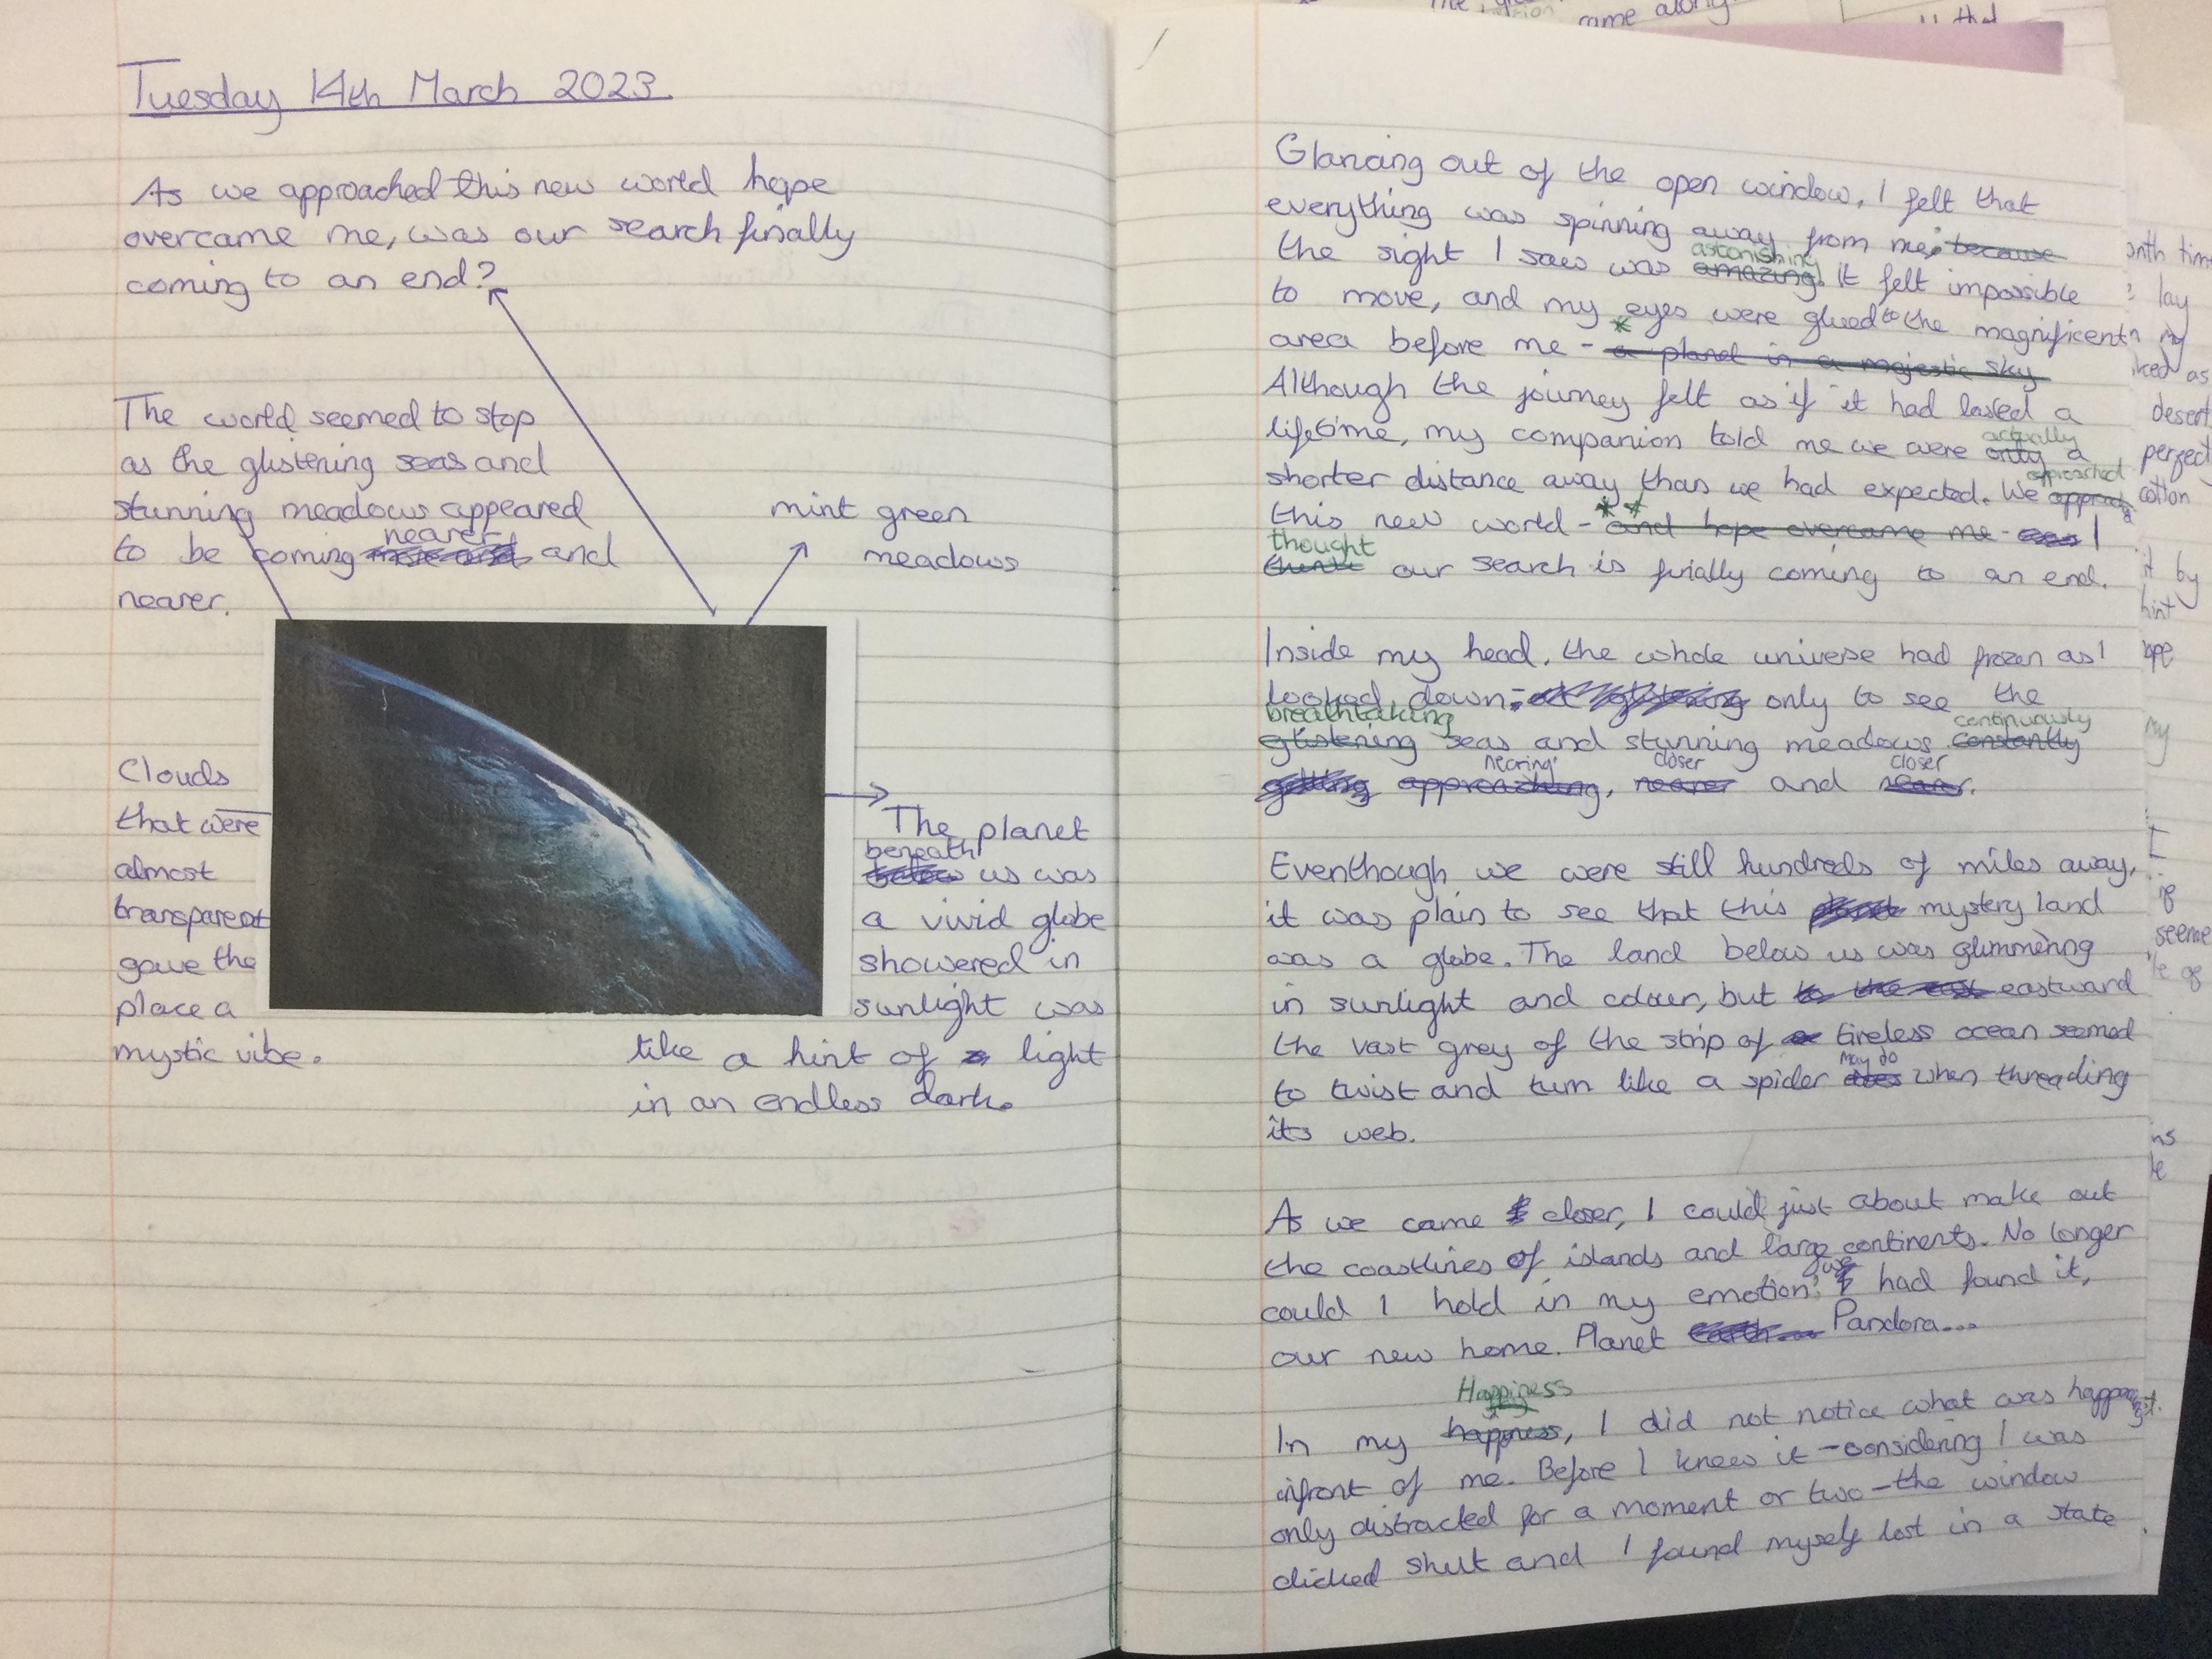 Tuesday 14th March 2023.
As we approached this new world hope
overcame me, was our search finally
coming to an end?
The world seemed to stop
as the glistening seas and
stunning meadows appeared
to be coming nearer and
nearer.
mint green
meadows
Clouds
that were
almost
transparent
gave the
place a
mystic vibe.
The planet
beneath
below us was
a vivid globe
showered in
sunlight was
like a hint of light
in an endless dark.
Glancing out of the open window, I felt that
everything was spinning away from me; because
astonishing
the sight I saw was amazing. It felt impossible
to move, and my eyes were glued to the magnificent
area before me - * a planet in a majestic sky
Although the journey felt as if it had lasted a
actually
lifetime, my companion told me we were only a
approached
shorter distance away than we had expected. We
this new world - ** and hope overcame me - I
thought
think our search is finially coming to an end.
Inside my head, the whole universe had frozen as I
looked down, at glistening only to see the
breathtaking continuously
glistening seas and stunning meadows constantly
nearing, closer closer
getting approaching, nearer and nearer.
Eventhough we were still hundreds of miles away,
it was plain to see that this planet mystery land
was a globe. The land below us was glimmering
in sunlight and colour, but to the east eastward
the vast grey of the strip of tireless ocean seemed
may do
to twist and turn like a spider does when threading
its web.
As we came closer, I could just about make out
the coastlines of islands and large continents. No longer
we
could I hold in my emotion: I had found it,
our new home. Planet earth... Pandora...
Happiness
In my happiness, I did not notice what was happening
infront of me. Before I knew it - considering I was
only distracted for a moment or two - the window
clicked shut and I found myself lost in a state
came along
that
onth time
lay
my
ked as
desert
perfect
cotton
it by
hint
ope
my
I
seeme
le of
ns
le